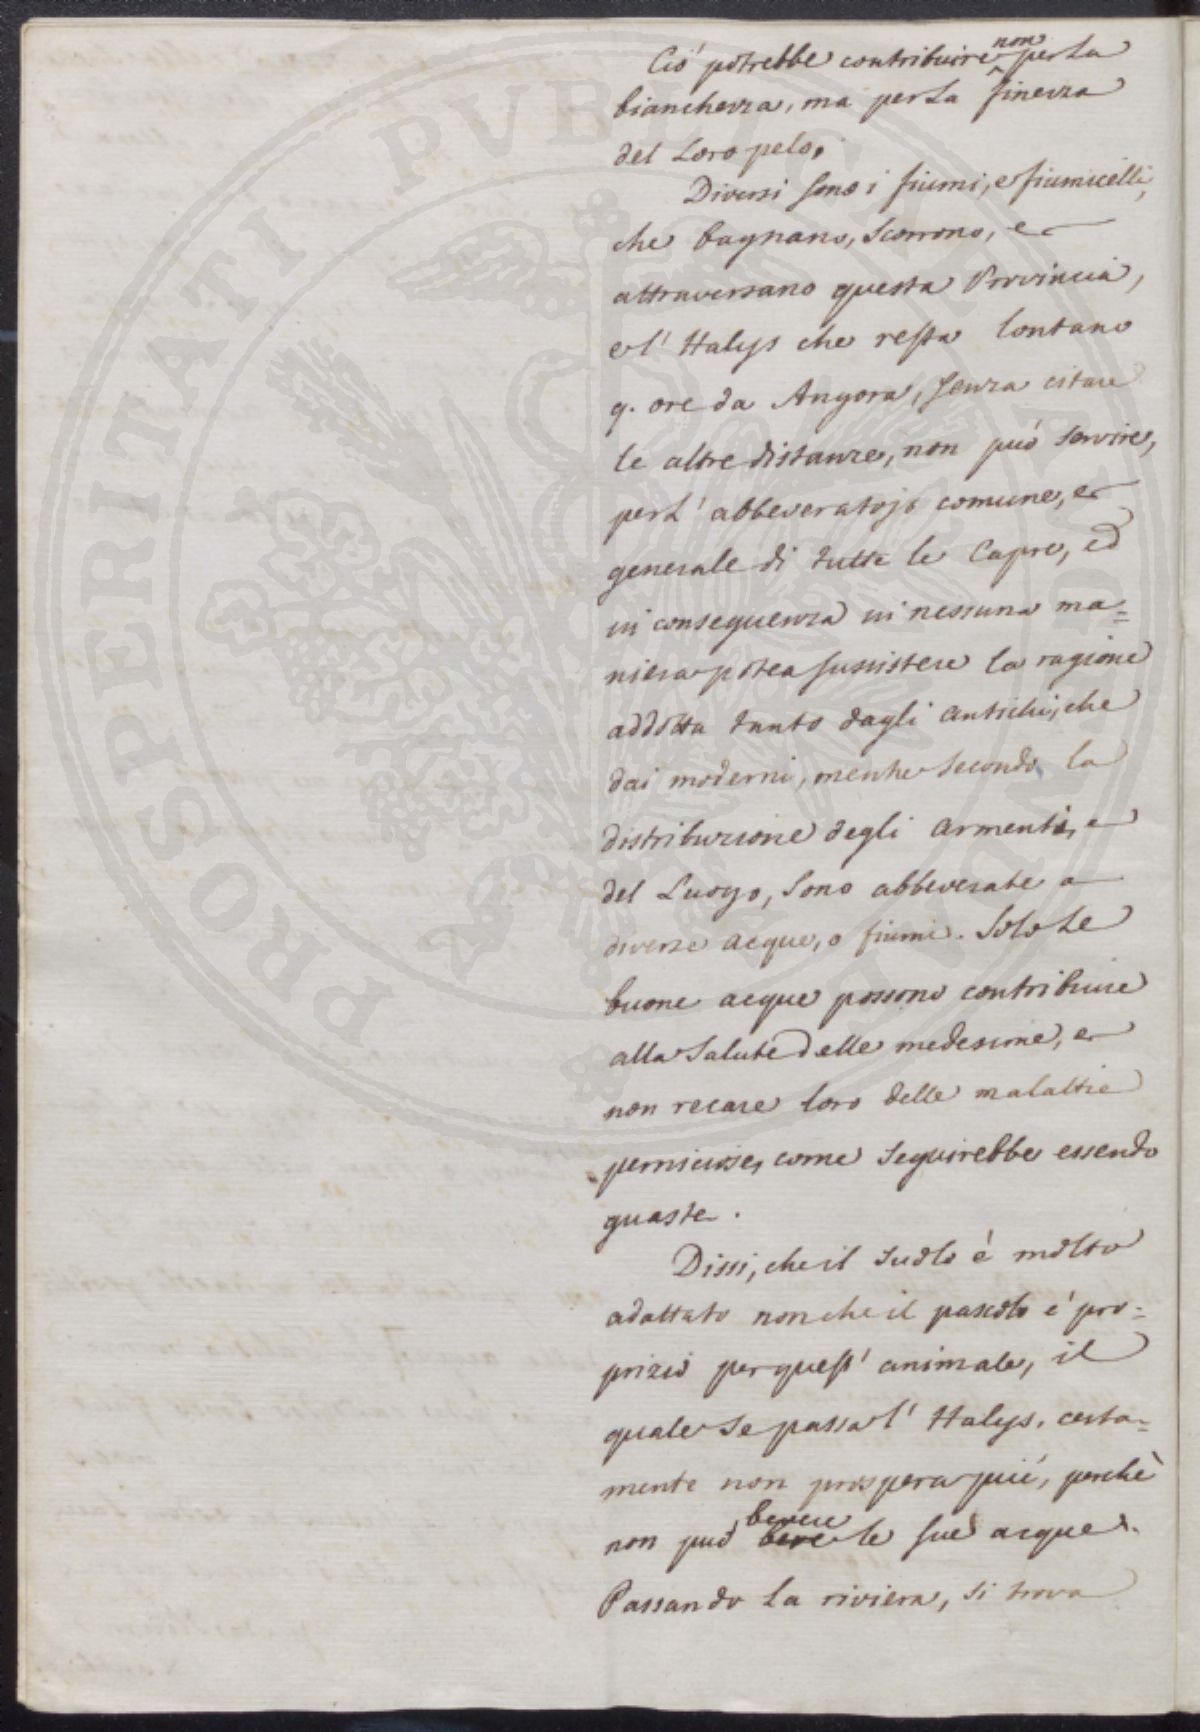 Ció potrebbe contribuire non per la
bianchezza, ma per La finezza
del Loro pelo.
Diversi sono i fiumi, e fiumicelli,
che bagnano, scorrono, e
attraversano questa Provincia,
e l' Halys che resta lontano
9. ore da Angora, senza citare
le altre distanze, non puó servire,
per L' abbeveratojo comune, e
generale di tutte le Capre, ed
in conseguenza in nessuna ma=
niera potea sussistere la ragione
addotta tanto dagli antichi, che
dai moderni, mentre secondo la
distribuzione degli armenti, e
del Luogo, sono abbeverate a
diverse acque, o fiumi. Solo Le
buone acque possono contribuire
alla salute delle medesime, e
non recare loro delle malattie
perniciose, come seguirebbe essendo
guaste.
Dissi, che il suolo é molto
adattato non che il pascolo é pro=
prizio per quest' animale, il
quale se passa l' Halys, certa=
mente non prospera piú, perchè
non può bevere bere le sue acque.
Passando La riviera, si trova
PROSPERITATI PVBLICAE AVGENDAE